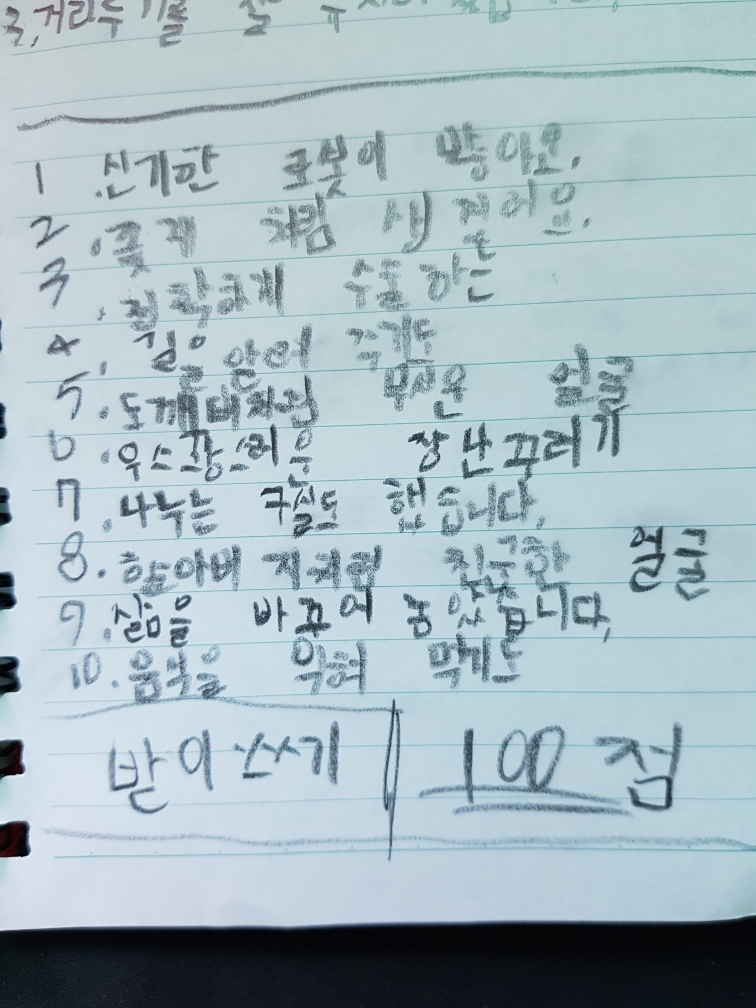 3, 거리두기를 잘
1 .신기한 로봇이 많아요.
2 .꽃게 처럼 생겼어요.
3 , 침착하게 수술하는
4 , 길을 알려 주기도
5 . 도깨비처럼 무서운 얼굴
6 .우스꽝스러운 장난꾸러기
7 .나누는 구실도 했습니다.
8 . 할아버지처럼 친숙한 얼굴
9 .삶을 바꾸어 놓았습니다.
10 . 음식을 익혀 먹기도
받아쓰기 100점